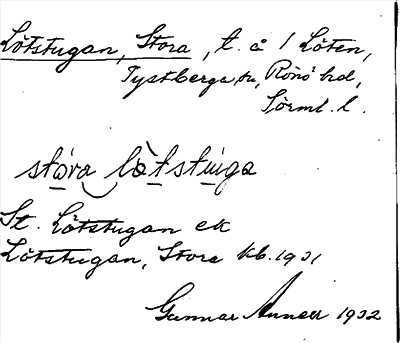 Lötstugan, Stora, t. å 1 Löten,
Tystberga sn, Rönö hd,
Sörml. l.
stóra lö̀tstùga
St. Lötstugan ek
Lötstugan, Stora kb. 1931
Gunnar Annell 1932